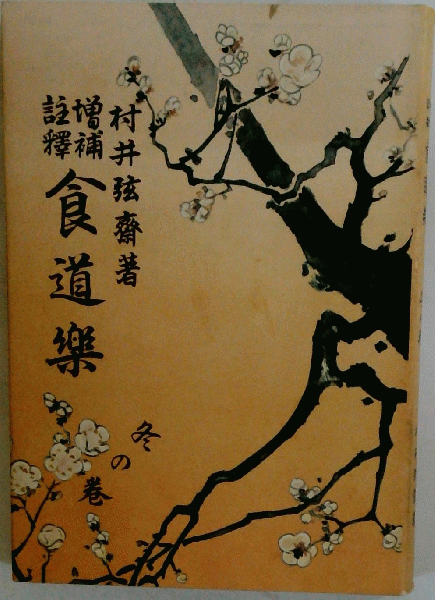 村井弦齋著
増補
註釋
食道樂
冬の巻